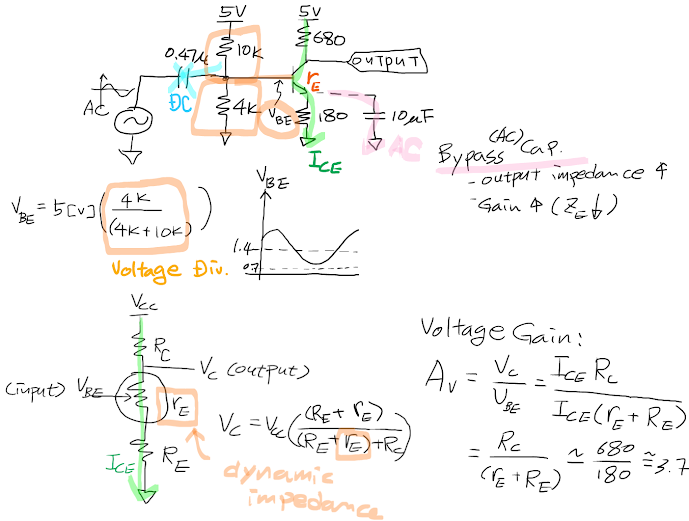 5V
5V
0.47μ
10K
680
output
AC
DC
4K
VBE
rE
180
10μF
ICE
AC
(AC)
Bypass Cap.
- output impedance ↑
- Gain ↑ (ZE↓)
VBE = 5[V] (4K / (4K+10K))
Voltage Div.
VBE
1.4
0.7
VCC
RC
VC (output)
(input) VBE
rE
RE
ICE
VC = VCC ((RE + rE) / ((RE + rE) + RC))
dynamic
impedance
Voltage Gain:
AV = VC / VBE = ICE RC / ICE (rE + RE)
= RC / (rE + RE) ≃ 680 / 180 ≅ 3.7